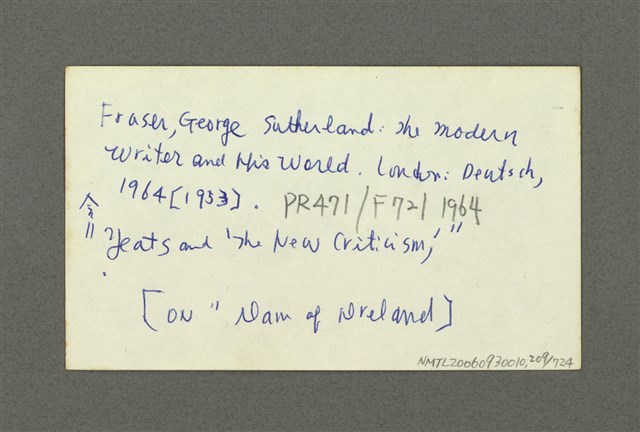 Fraser, George Sutherland: The Modern
Writer and His World. London: Deutsch,
1964[1953]. PR471/F721 1964
"Yeats and 'The New Criticism,'"
[on "I am of Ireland]
NMTL20060930010,209/724